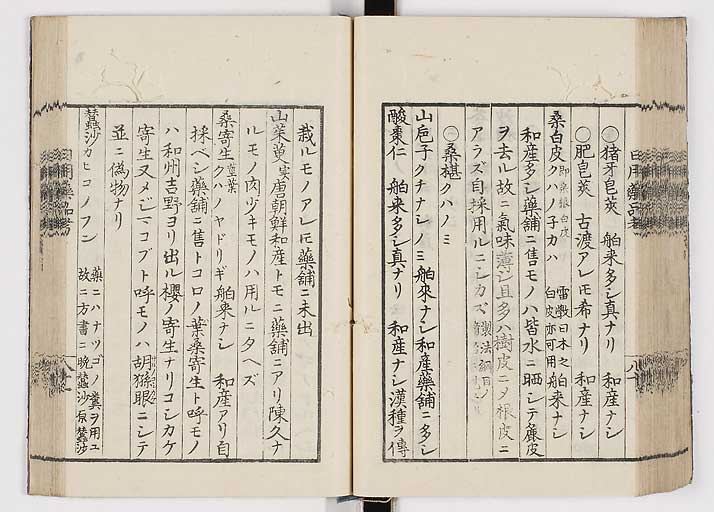 〇猪牙皂莢 舶来多シ真ナリ 和産ナシ
〇肥皂莢 古渡アレ𪜈希ナリ 和産ナシ
桑白皮 クハノ子カハ 舶来ナシ
和産多シ藥舗ニ售モノハ皆水ニ晒シテ麁皮
ヲ去ル故ニ氣味薄シ且多ハ樹皮ニ〆根皮ニ
アラズ自採用ルニシカズ
〇桑椹 クハノミ
山巵子 クチナシノミ 舶來ナシ和産藥舗ニ多シ
酸棗仁 舶来多シ真ナリ 和産ナシ漢種ヲ傳
栽ルモノアレ𪜈藥舗ニ未出
山茱萸 唐朝鮮和産トモニ藥舗ニアリ陳久ナ
ルモノ肉少キモノハ用ルニタヘズ
桑寄生 クハノヤドリギ 舶来ナシ 和産アリ自
採ベシ藥舗ニ售トコロノ葉桑寄生ト呼モノ
ハ和州吉野ヨリ出ル櫻ノ寄生ナリコシカケ
寄生又メジマコブト呼モノハ胡孫眼ニシテ
並ニ偽物ナリ
蠶沙 カヒコノフン
藥ニハナツゴノ糞ヲ用ユ
故ニ方書ニ晩蠶沙原蠶沙